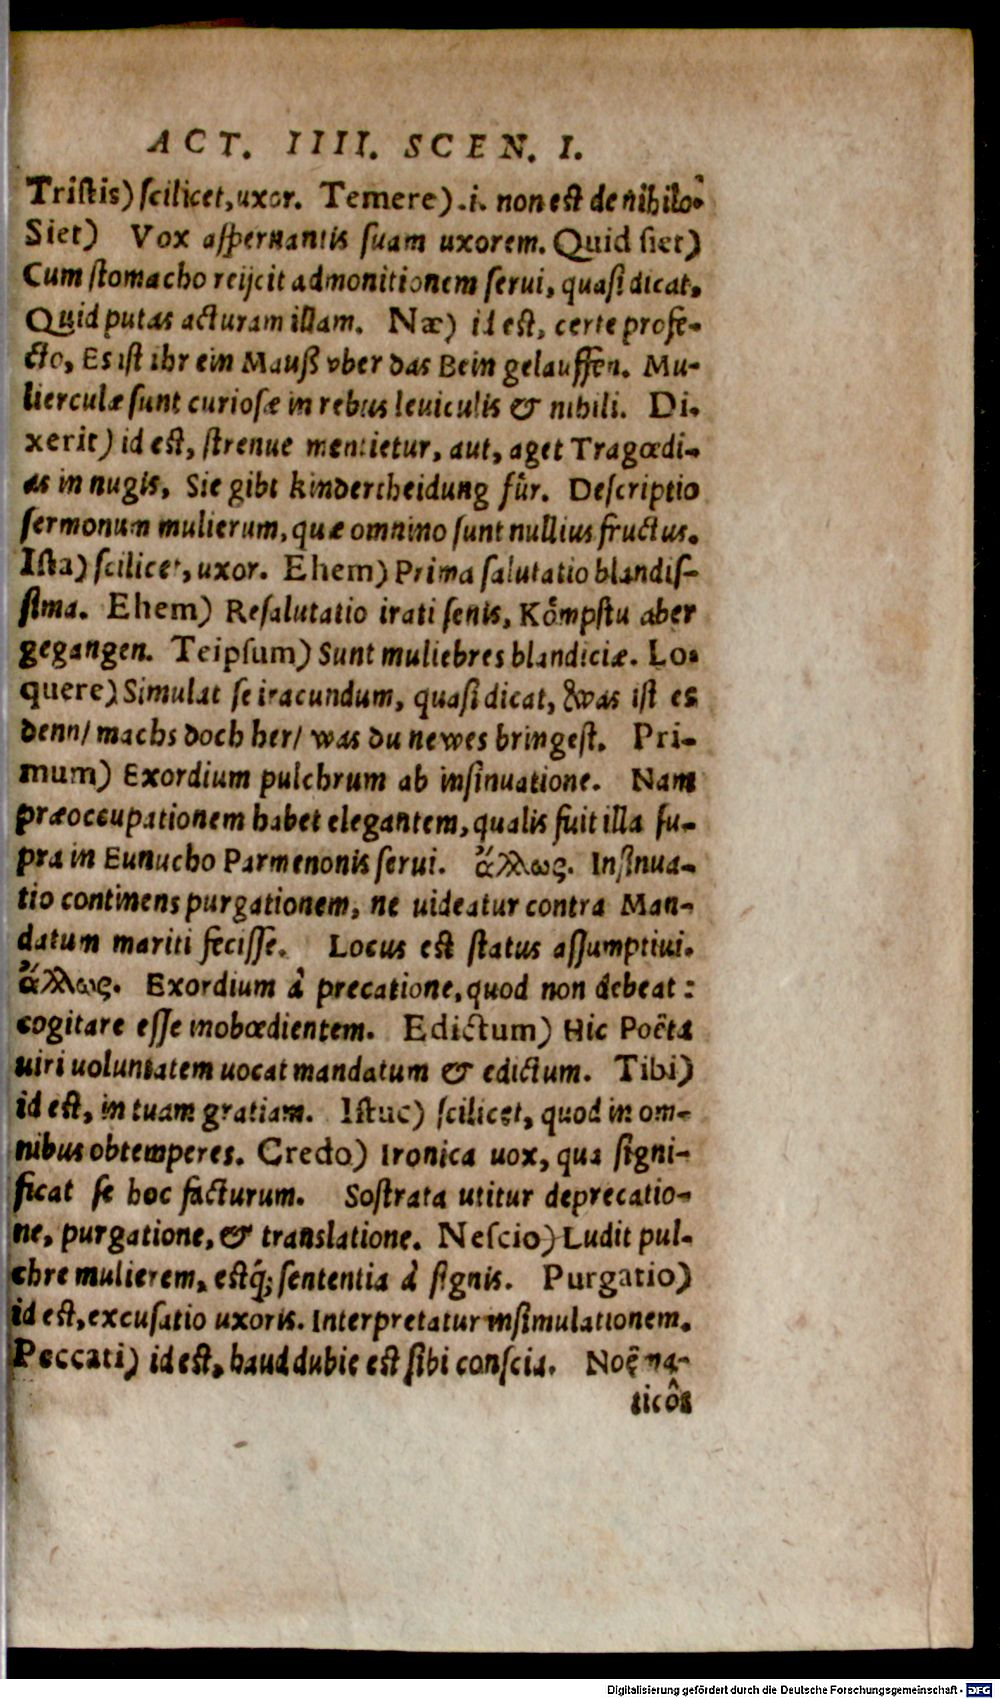 ACT. IIII. SCEN. I.
Tristis) scilicet, uxor. Temere) .i. non est de nihilo.
Siet) Vox aspernantis suam uxorem. Quid siet)
Cum stomacho reijcit admonitionem serui, quasi dicat.
Quid putas acturam illam. Næ) id est, certe profe-
cto, Es ist ihr ein Mauß vber das Bein gelauffen. Mu-
lierculæ sunt curiosæ in rebus leuiculis & nihili. Di-
xerit) id est, strenue mentietur, aut, aget Tragœdi-
as in nugis, Sie gibt kindertheidung für. Descriptio
sermonum mulierum, quæ omnino sunt nullius fructus.
Ista) scilicet, uxor. Ehem) Prima salutatio blandis-
sima. Ehem) Resalutatio irati senis, Kömpstu aber
gegangen. Teipsum) Sunt muliebres blandiciæ. Lo-
quere) Simulat se iracundum, quasi dicat, Was ist es
denn/ machs doch her/ was du newes bringest. Pri-
mum) Exordium pulchrum ab insinuatione. Nam
præoccupationem habet elegantem, qualis fuit illa su-
pra in Eunucho Parmenonis serui. ἄλλως. Insinua-
tio continens purgationem, ne uideatur contra Man-
datum mariti fecisse. Locus est status assumptiui.
ἄλλως. Exordium à precatione, quod non debeat :
cogitare esse inobœdientem. Edictum) Hic Poëta
uiri uoluntatem uocat mandatum & edictum. Tibi)
id est, in tuam gratiam. Istuc) scilicet, quod in om-
nibus obtemperes. Credo) Ironica uox, qua signi-
ficat se hoc facturum. Sostrata utitur deprecatio-
ne, purgatione, & translatione. Nescio) Ludit pul-
chre mulierem, estq́; sententia à signis. Purgatio)
id est, excusatio uxoris. Interpretatur insimulationem.
Peccati) id est, haud dubie est sibi conscia. Noë na-
ticôs
Digitalisierung gefördert durch die Deutsche Forschungsgemeinschaft - DFG